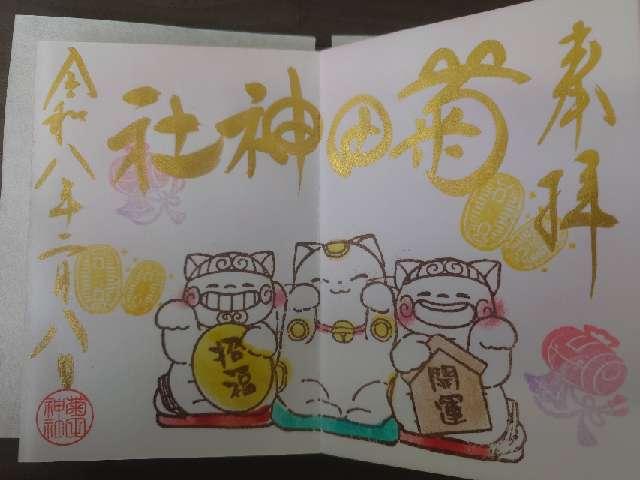 奉拝
菊田神社
令和八年二月八日
招福
開運
菊田神社